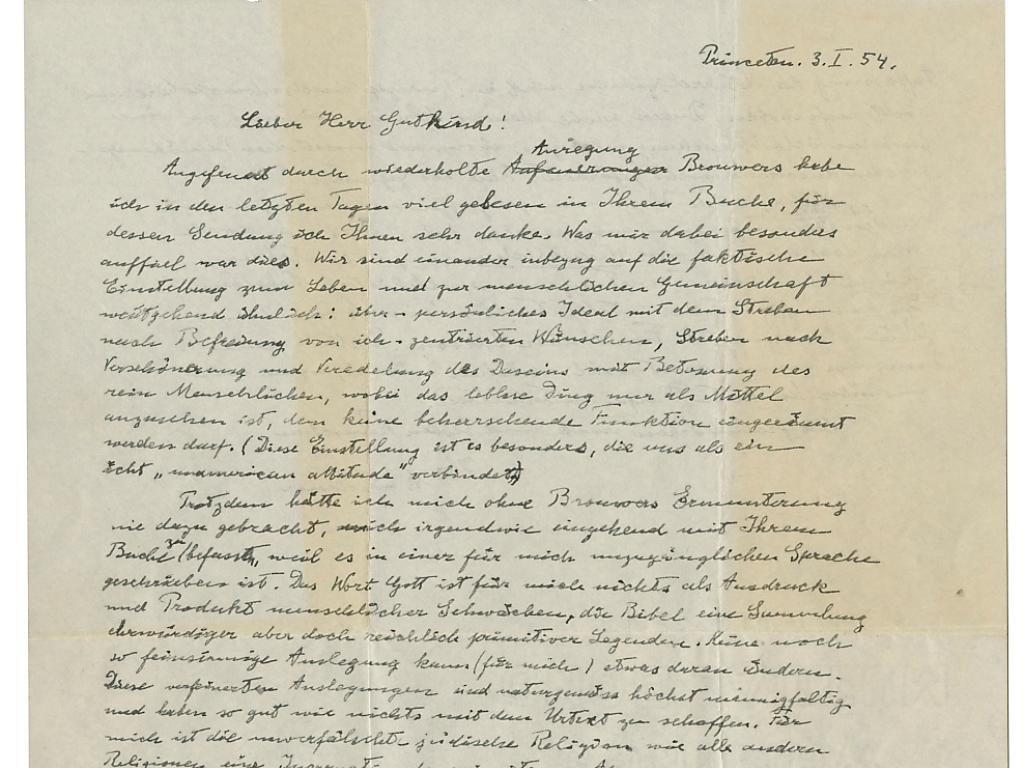 Princeton. 3. I. 54.
Lieber Herr Gutkind!
Anregung
Angefeuert durch wiederholte Anfeuerungen Brouwers habe
ich in den letzten Tagen viel gelesen in Ihrem Buche, für
dessen Sendung ich Ihnen sehr danke. Was mir dabei besonders
auffiel war dies. Wir sind einander inbezug auf die faktische
Einstellung zum Leben und zur menschlichen Gemeinschaft
weitgehend ähnlich: über-persönliches Ideal mit dem Streben
nach Befreiung von ich-zentrierten Wünschen, Streben nach
Verschönerung und Veredelung des Daseins mit Betonung des
rein Menschlichen, wobei das leblose Ding nur als Mittel
anzusehen ist, dem keine beherrschende Funktion eingeräumt
werden darf. (Diese Einstellung ist es besonders, die uns als ein
echt „unamerican attitude“ verbindet)
Trotzdem hätte ich mich ohne Brouwers Ermunterung
nie dazu gebracht, mich irgendwie eingehend mit Ihrem
Buche zu befassen, weil es in einer für mich unzugänglichen Sprache
geschrieben ist. Das Wort Gott ist für mich nichts als Ausdruck
und Produkt menschlicher Schwächen, die Bibel eine Sammlung
ehrwürdiger aber doch reichlich primitiver Legenden. Keine noch
so feinsinnige Auslegung kann (für mich) etwas daran ändern.
Diese verfeinerten Auslegungen sind naturgemäss höchst mannigfaltig
und haben so gut wie nichts mit dem Urtext zu schaffen. Für
mich ist die unverfälschte jüdische Religion wie alle anderen
Religionen eine